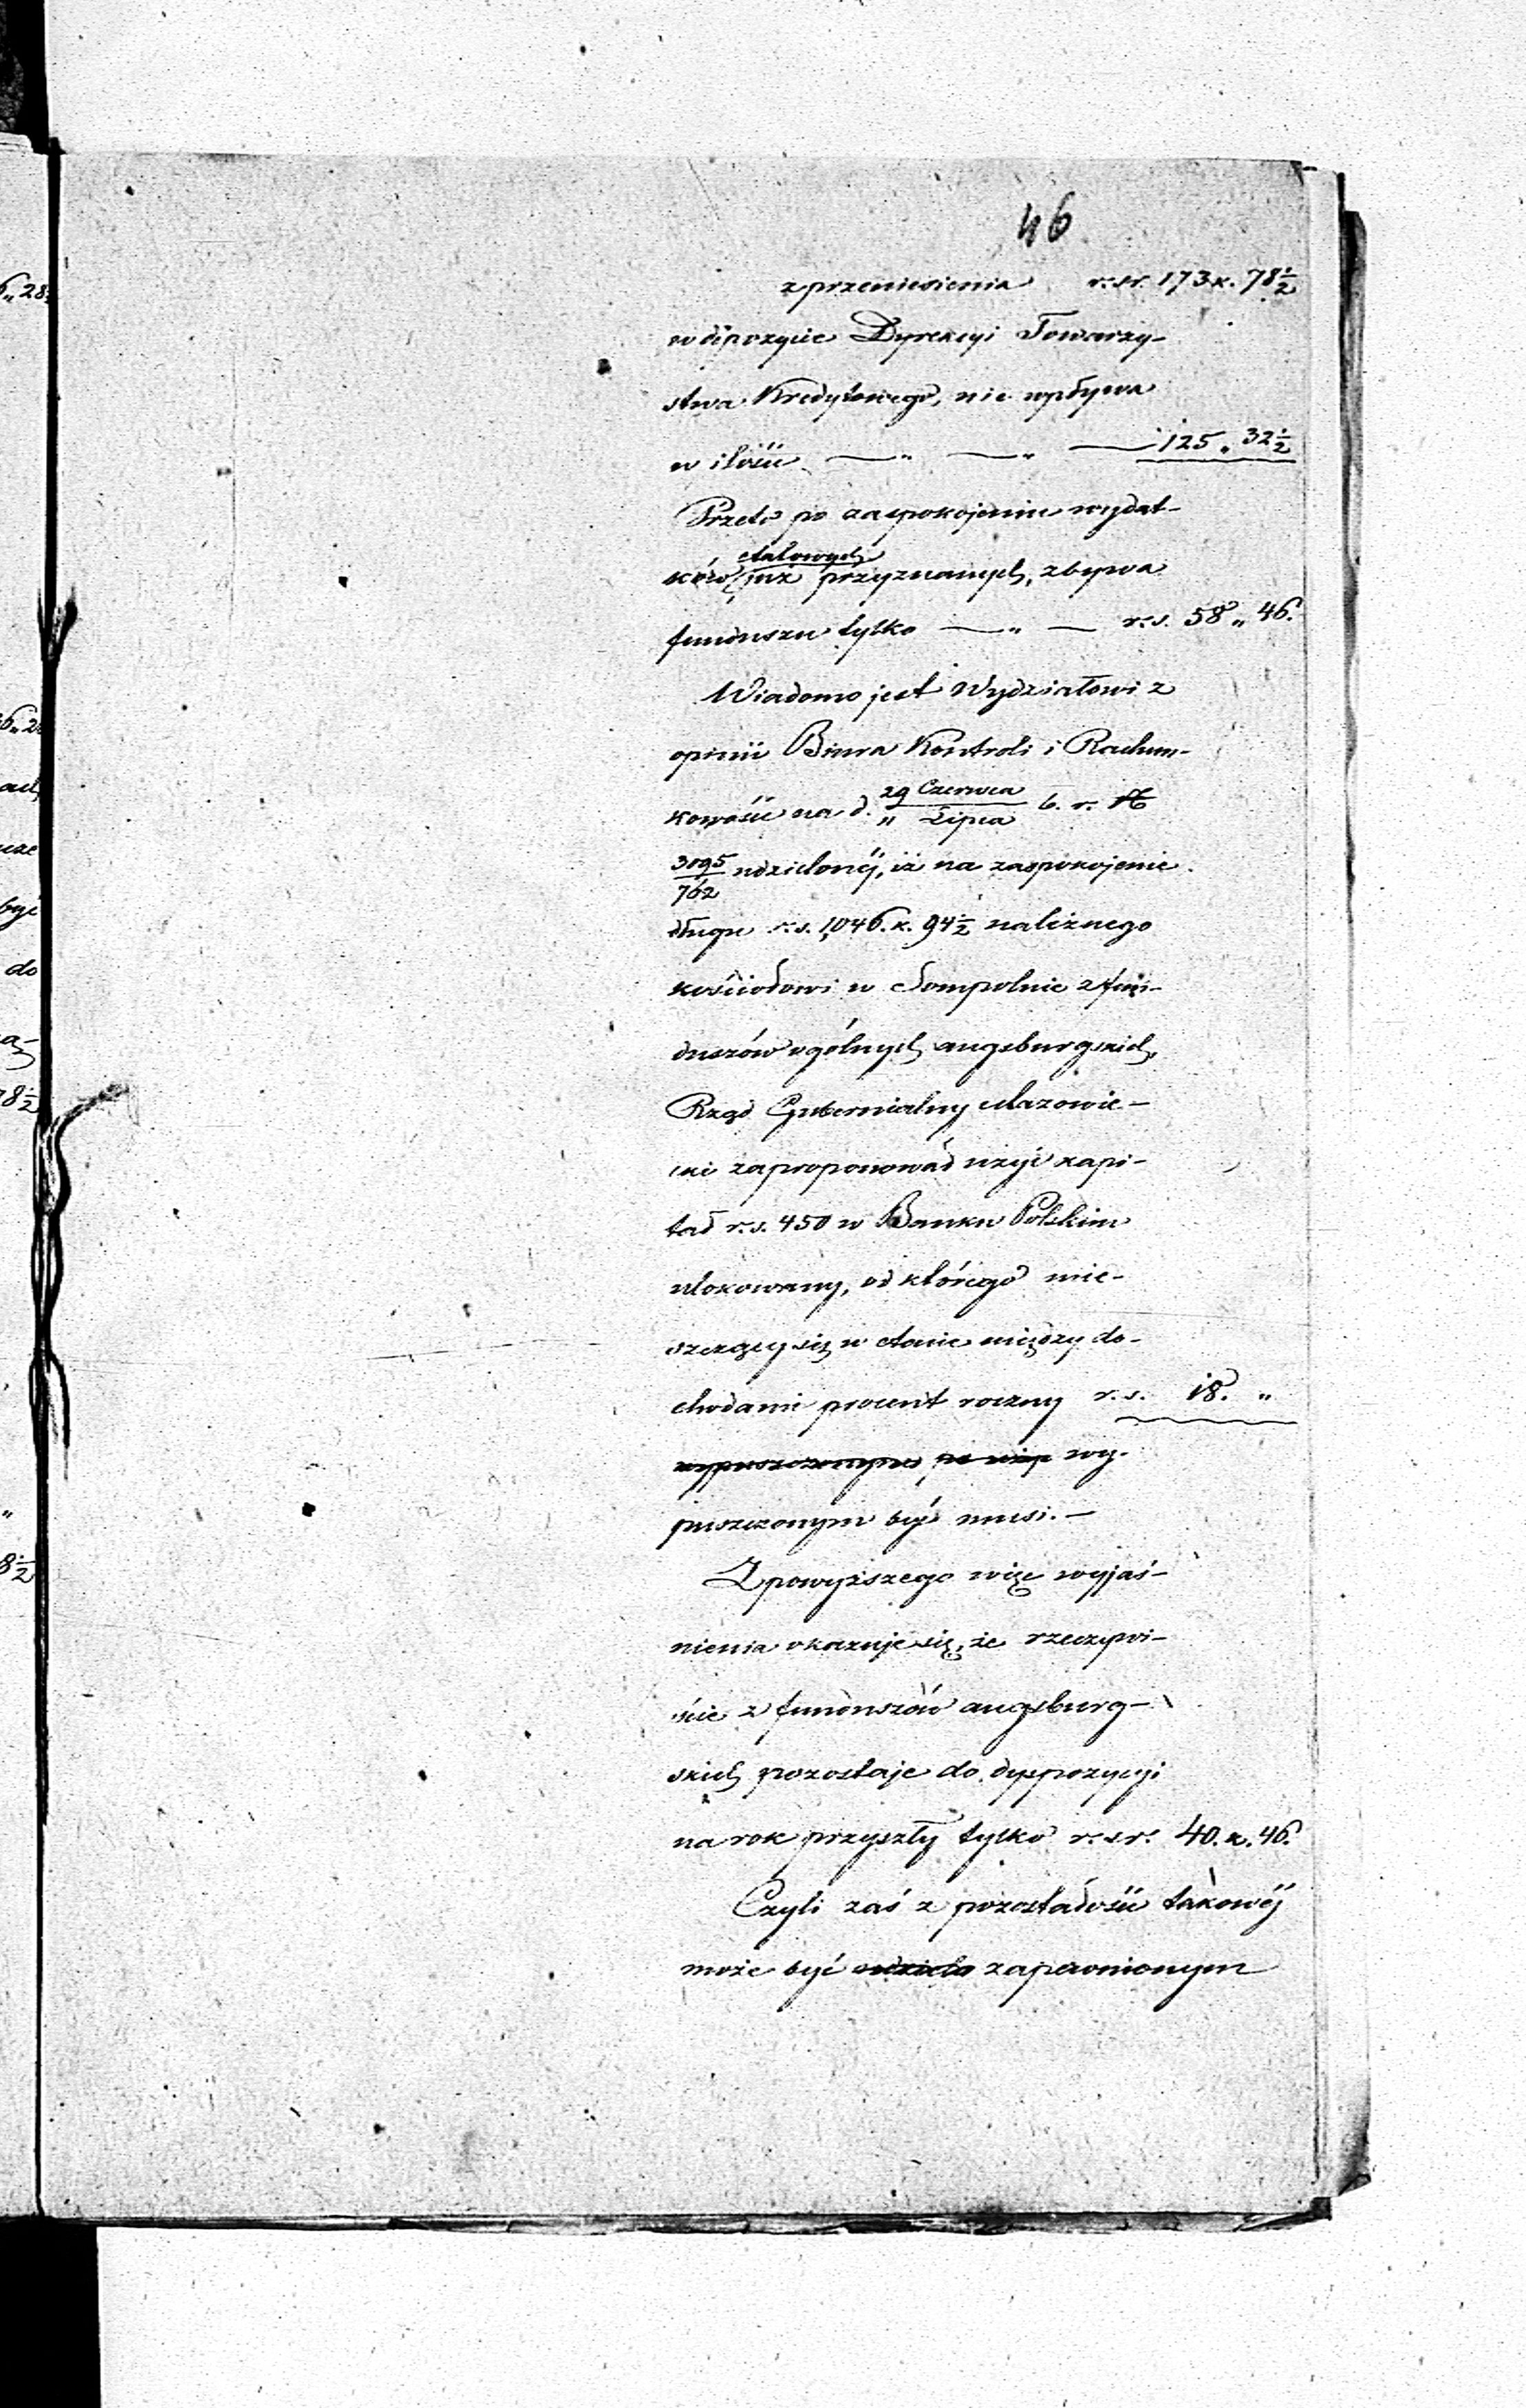 46
z przeniesienia r. sr. 173 k. 78 1/2
w depozycie Dyrekcyi Towarzy-
stwa Kredytowego, nie wpływa
w ilości —„ —„ — 125 „ 32 1/2
Przeto po zaspokojeniu wydat-
stałowych
ków już przyznanych, zbywa
funduszu tylko —„— r. s. 58 „ 46.
Wiadomo jest Wydziałowi z
opinii Biura Kontroli i Rachun-
kowości na d. 29 Czerwca / „ Lipca b. r. N
3095/762 udzielonéj, iż na zaspokojenie
długu r. s. 1,046. k. 94 1/2 należnego
kościołowi w Sompolnie z fun-
duszów ogólnych augsburgskich,
Rząd Gubernialny Mazowie-
cki zaproponował użyć kapi-
tał r. s. 450 w Banku Polskim
ulokowany, od którego mie-
szczący się w etacie między do-
chodami procent roczny r. s. 18. „
wypuszczonym wy-
puszczonym być musi. —
Z powyższego więc wyjaś-
nienia okazuje się, że rzeczywi-
ście z funduszów augsburg-
skich pozostaje do dyspozycyi
na rok przyszły tylko r. sr. 40. k. 46.
Czyli zaś z pozostałości takowéj
może być zapewnionym
6 „ 28
6 „ 2
być
do
78 1/2
„
8 1/2